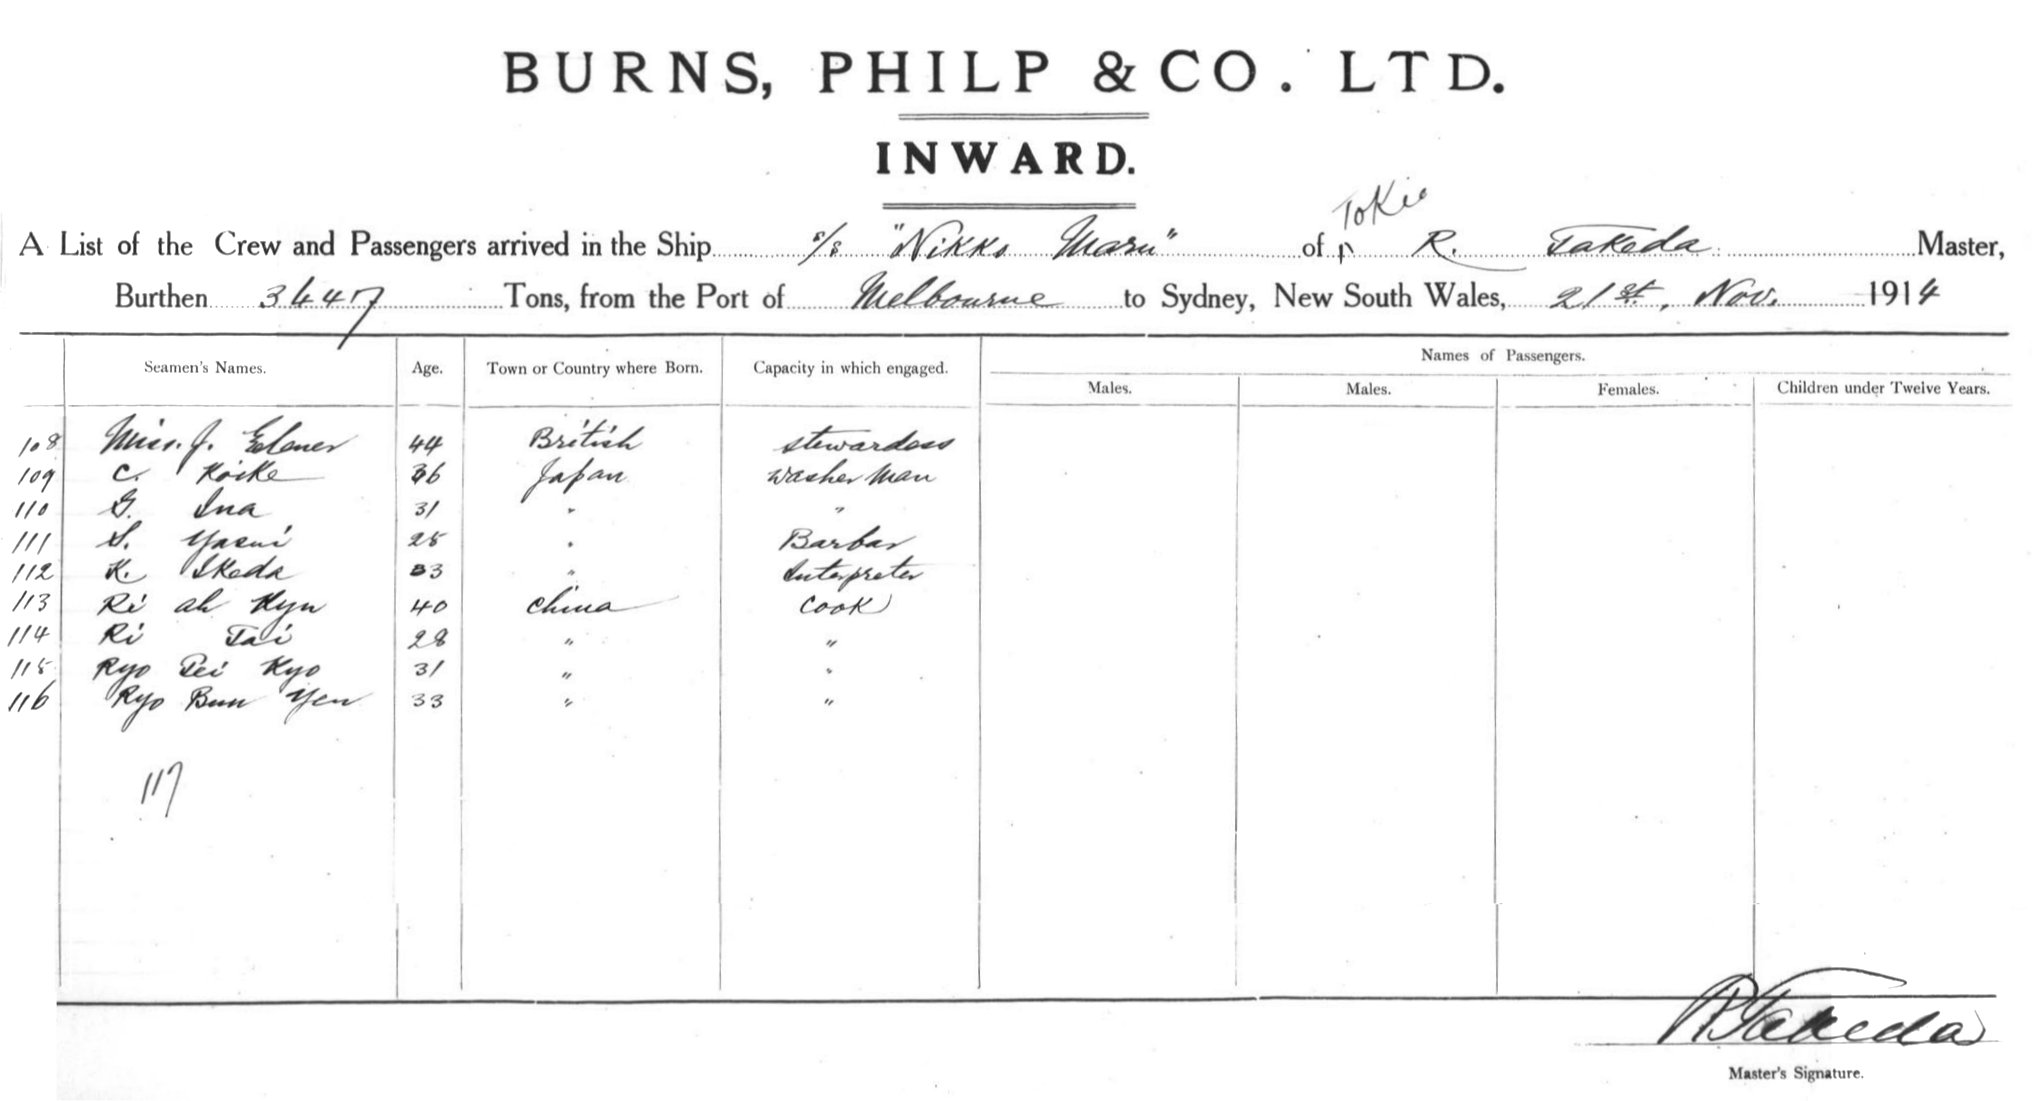 BURNS, PHILP & CO. LTD.
INWARD.
Tokio
A List of the Crew and Passengers arrived in the Ship s/s "Nikko Maru" of R. Takeda Master,
Burthen 3447 Tons, from the Port of Melbourne to Sydney, New South Wales, 21st, Nov. 1914
Names of Passengers.
Seamen's Names. Age. Town or Country where Born. Capacity in which engaged. Males. Males. Females. Children under Twelve Years.
108 Miss. J. 44 British stewardess
109 C. Koike 36 Japan washer man
110 G. Ina 31 " "
111 S. Yasui 25 " Barbar
112 K. Ikeda 33 " Interpreter
113 Ri ah Kyu 40 China cook
114 Ri Tai 28 " "
115 Ryo Pei Kyo 31 " "
116 Ryo Bun Yen 33 " "
117
R Takeda
Master's Signature.